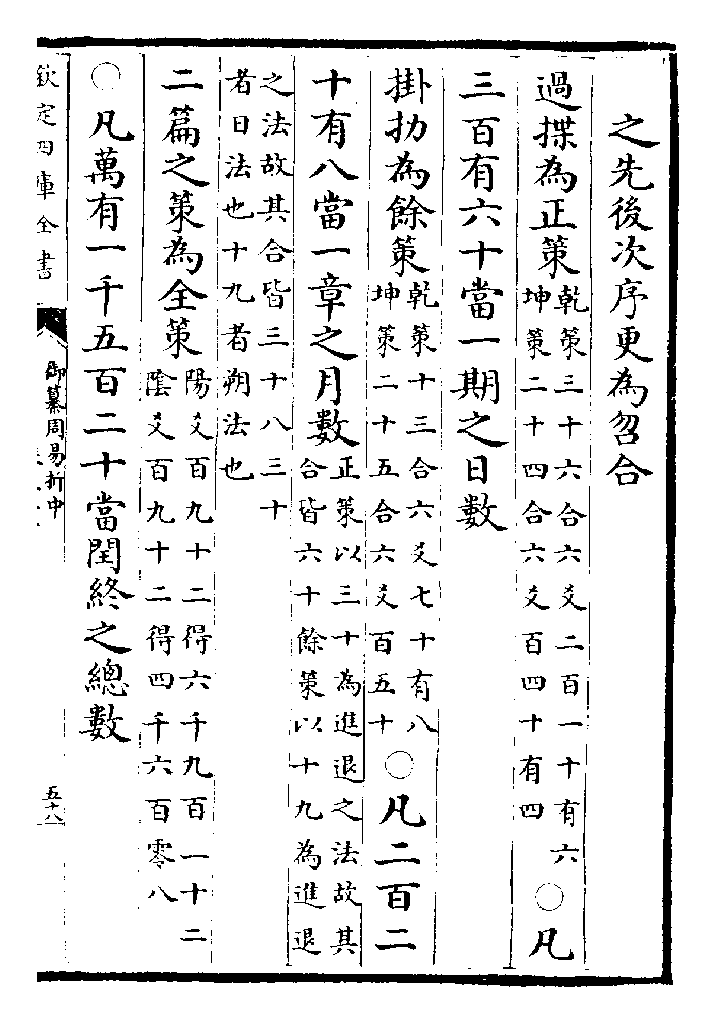 之先後次序更為吻合
過揲為正策乾策三十六合六爻二百一十有六
坤策二十四合六爻百四十有四○凡
三百有六十當一期之日數
掛扐為餘策乾策十三合六爻七十有八
坤策二十五合六爻百五十○凡二百二
十有八當一章之月數正策以三十為進退之法故其
合皆六十餘策以十九為進退
之法故其合皆三十八三十
者日法也十九者朔法也
二篇之策為全策陽爻百九十二得六千九百一十二
陰爻百九十二得四千六百零八
○凡萬有一千五百二十當閏終之總數
欽定四庫全書
御纂周易折中
五十八